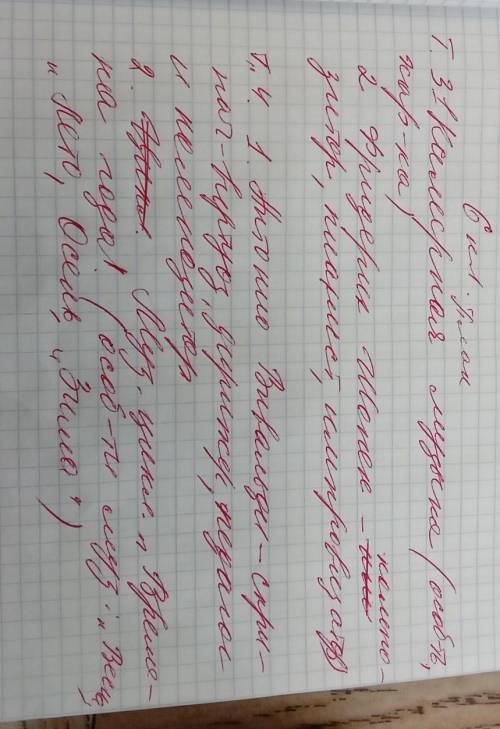 6 кл. План
Т. 3. 1 Камерная музыка (особ.,
хар-ка)
2 Фридерик Шопен - компо-
зитор, пианист, импровизатор
Т. 4. 1. Антонио Вивальди - скри-
пач-виртуоз, дирижёр, педагог
и композитор
2. Муз. цикл "Време-
на года" (особ-ти муз. "Весна",
"Лето, Осень", "Зима")